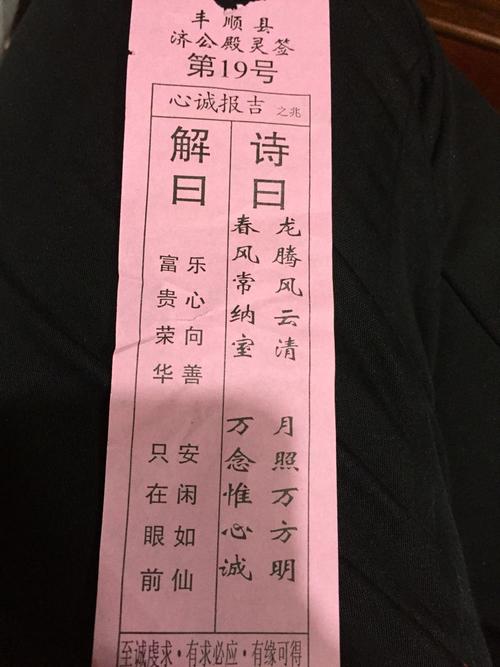 丰顺县
济公殿灵签
第19号
心诚报吉之兆
诗曰
龙腾风云清 月照万方明
春风常纳室 万念惟心诚
解曰
乐心向善 安闲如仙
富贵荣华 只在眼前
至诚虔求·有求必应·有缘可得